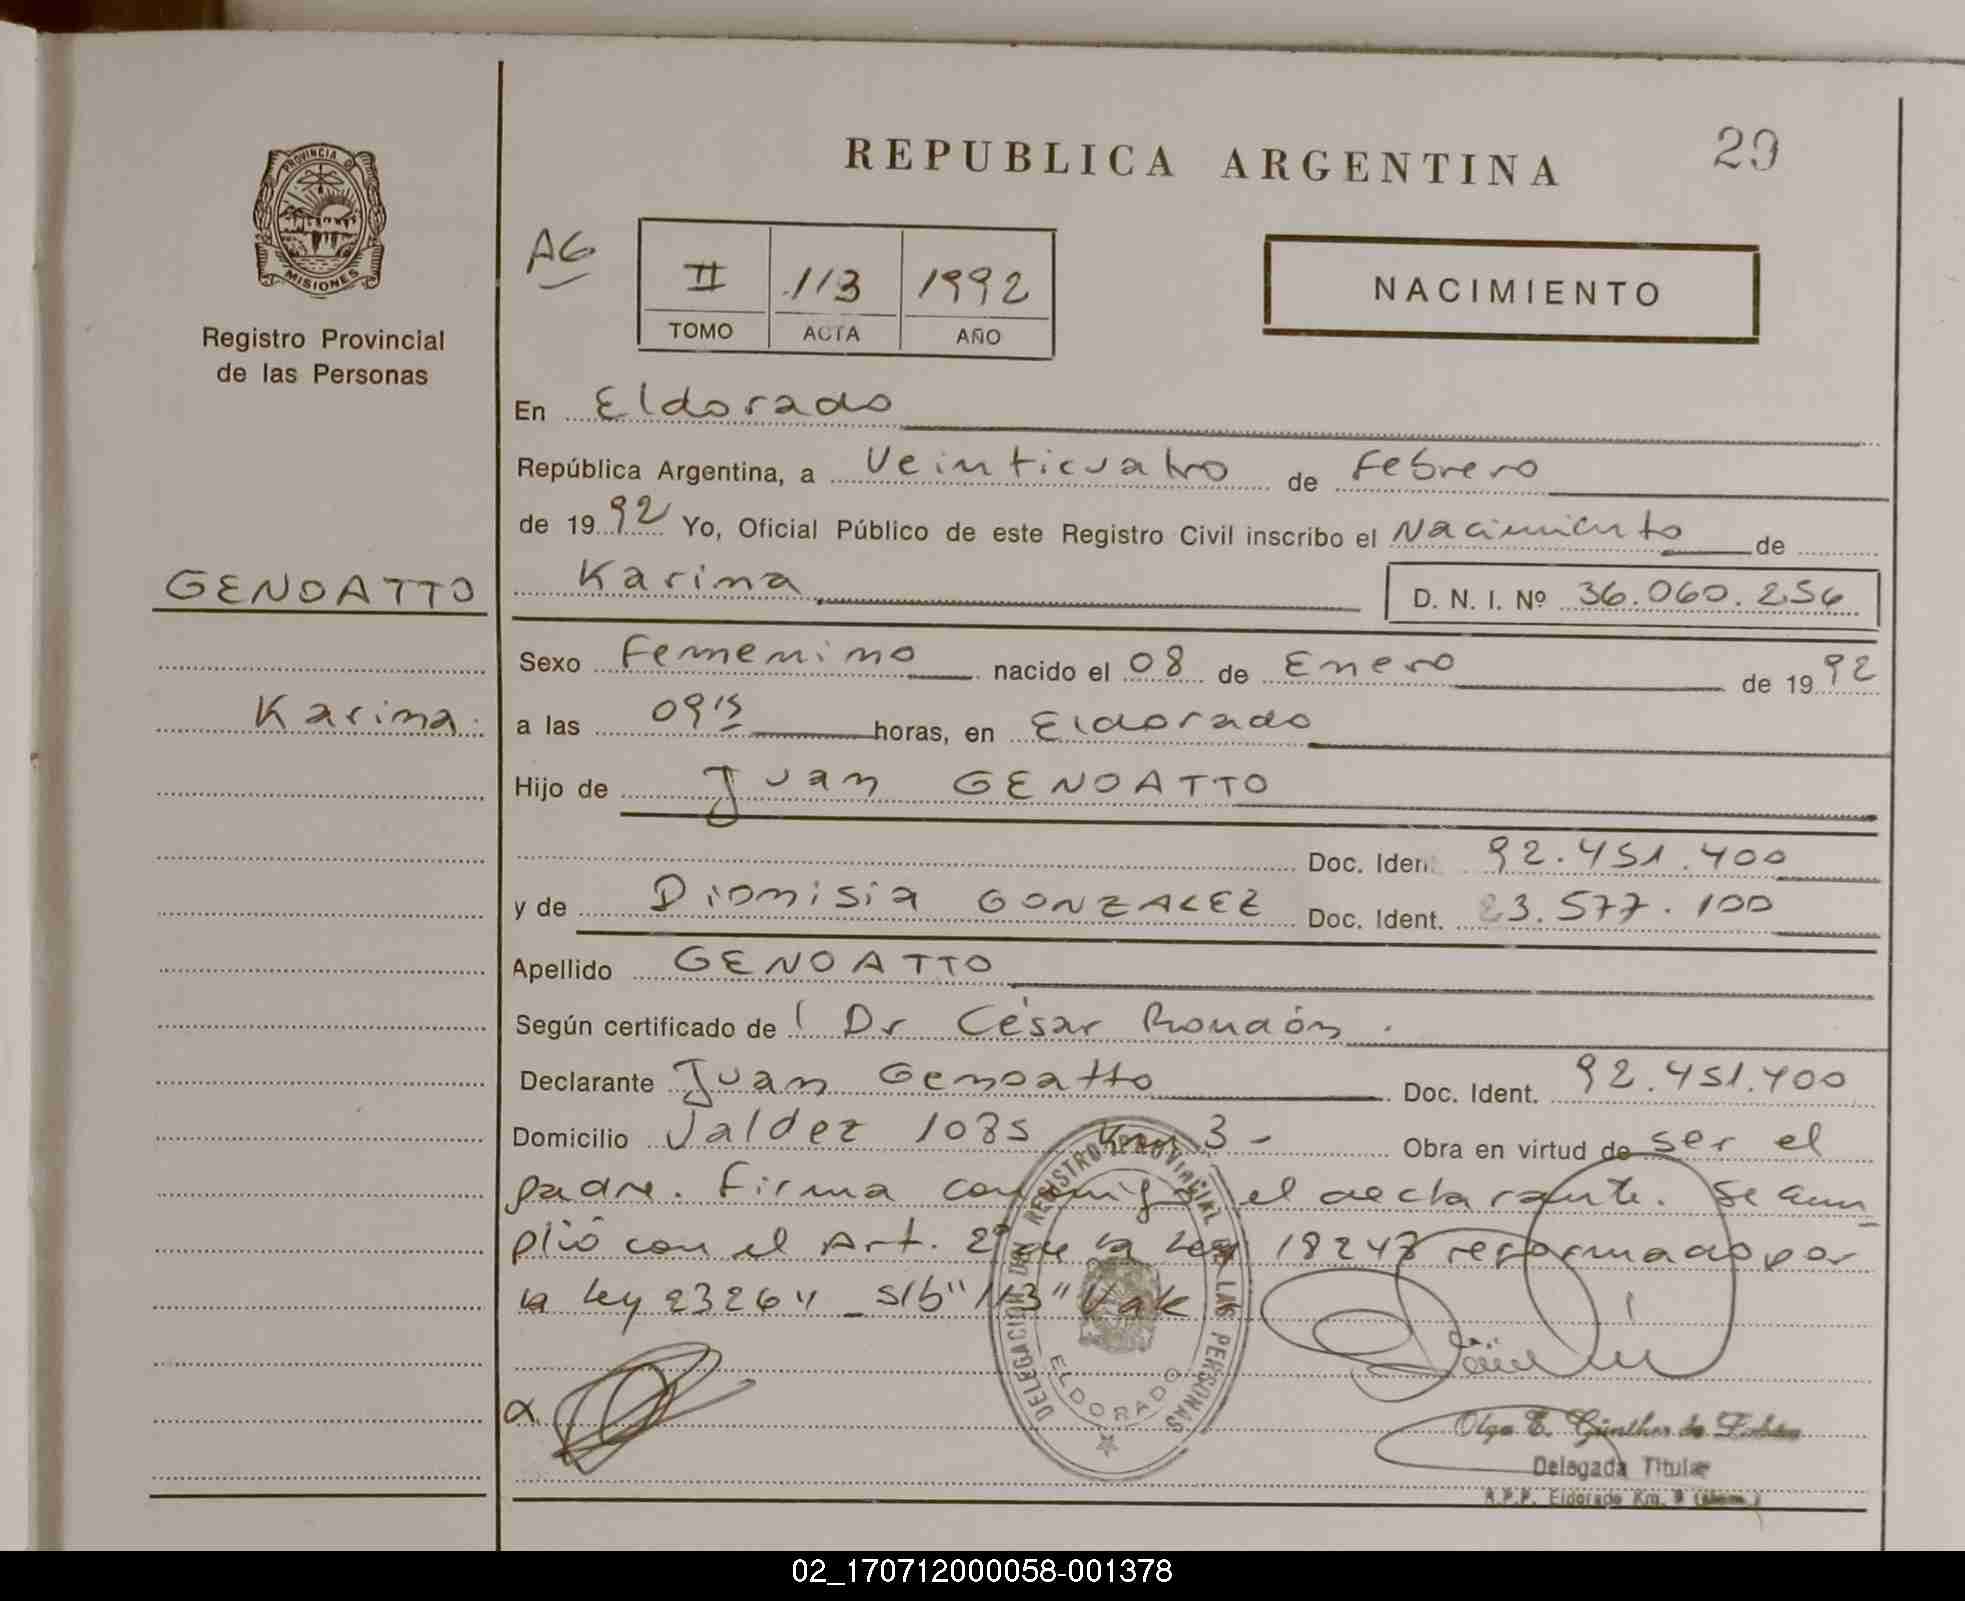 REPUBLICA ARGENTINA
29
PROVINCIA D
MISIONES
Registro Provincial
de las Personas
AG
II 113 1992
TOMO ACTA AÑO
NACIMIENTO
En Eldorado
República Argentina, a Veinticuatro de Febrero
de 1992 Yo, Oficial Público de este Registro Civil inscribo el Nacimiento de
GENOATTO
Karina D. N. I. Nº 36.060.256
Sexo Femenino nacido el 08 de Enero de 1992
Karina.
a las 09 15 horas, en Eldorado
Hijo de Juan GENOATTO
Doc. Iden 92.451.400
y de Dionisia GONZALEZ Doc. Ident. 23.577.100
Apellido GENOATTO
Según certificado de l Dr César
Declarante Juan Genoatto Doc. Ident. 92.451.400
Domicilio Valdez 1085 Km 3 - Obra en virtud de ser el
padre. Firma conmigo el declarante. Se cum
plió con el Art. 2º de la Ley 18248 reformado por
la ley 23264 _ S/b "113" Vale
DELEGACION DEL REGISTRO PROVINCIAL DE LAS PERSONAS
ELDORADO
Olga E. Günther de
Delegada Titular
R.P.P. Eldorado Km. 9
02_170712000058-001378